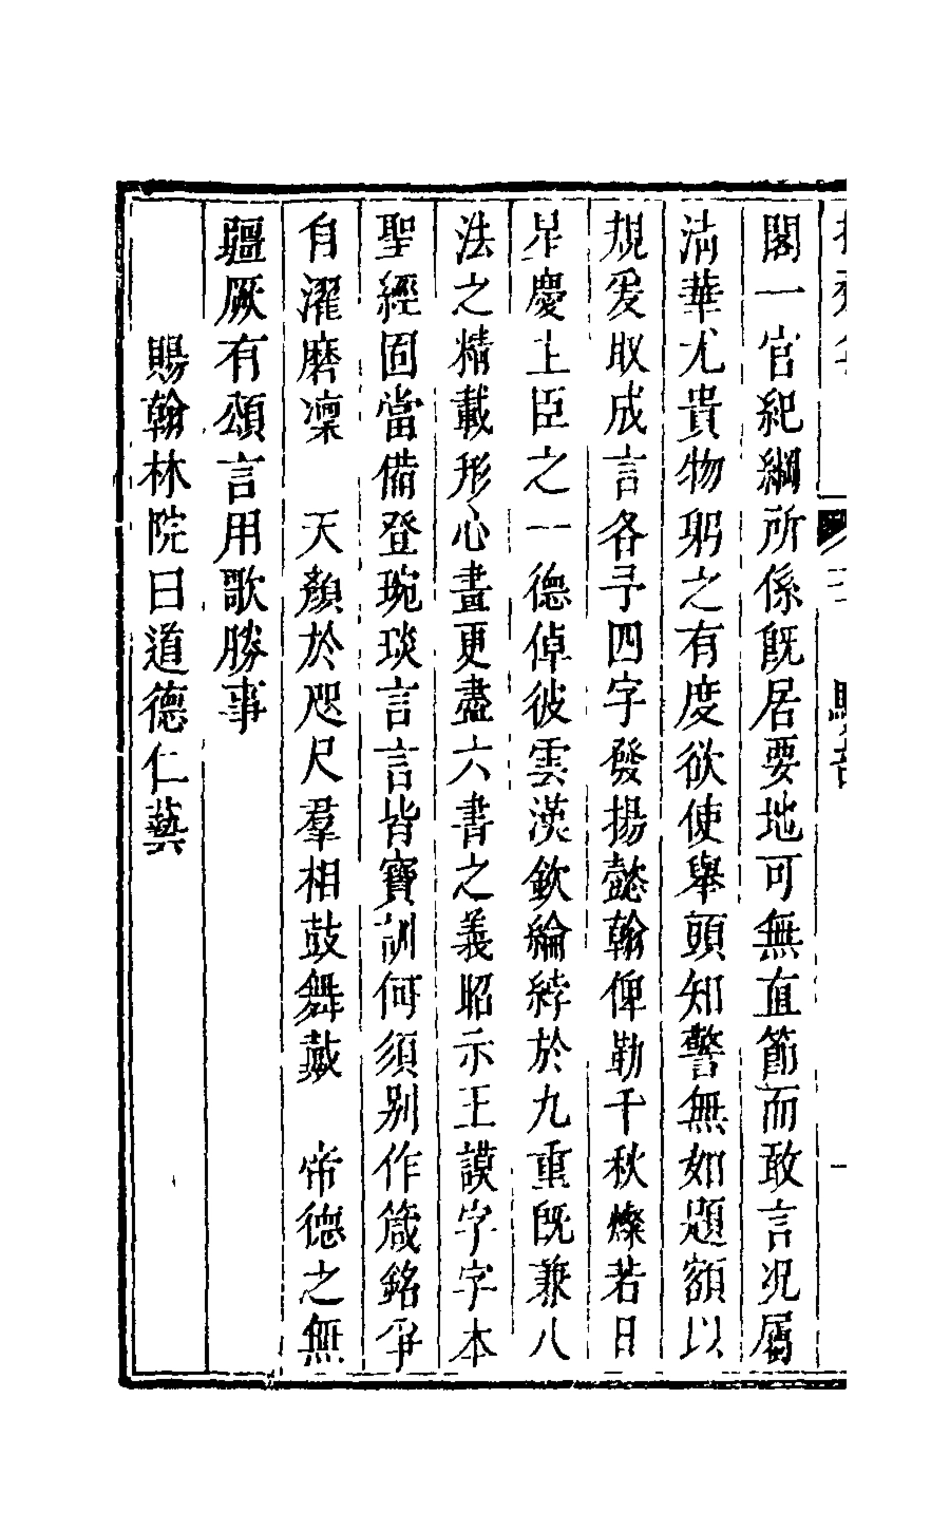 閣一官紀綱所係旣居要地可無直節而敢言况屬
淸華尤貴物躬之有度欲使舉頭知警無如題額以
規爰取成言各予四字發揚懿翰俾勒千秋燦若日
星慶上臣之一德倬彼雲漢欽綸綍於九重旣兼八
法之精載形心畫更盡六書之義昭示王謨字字本
聖經固當備登琬琰言言皆寶訓何須别作箴銘爭
自濯磨凜　天顏於咫尺羣相鼓舞戴　帝德之無
疆厥有頌言用歌勝事
賜翰林院曰道德仁藝